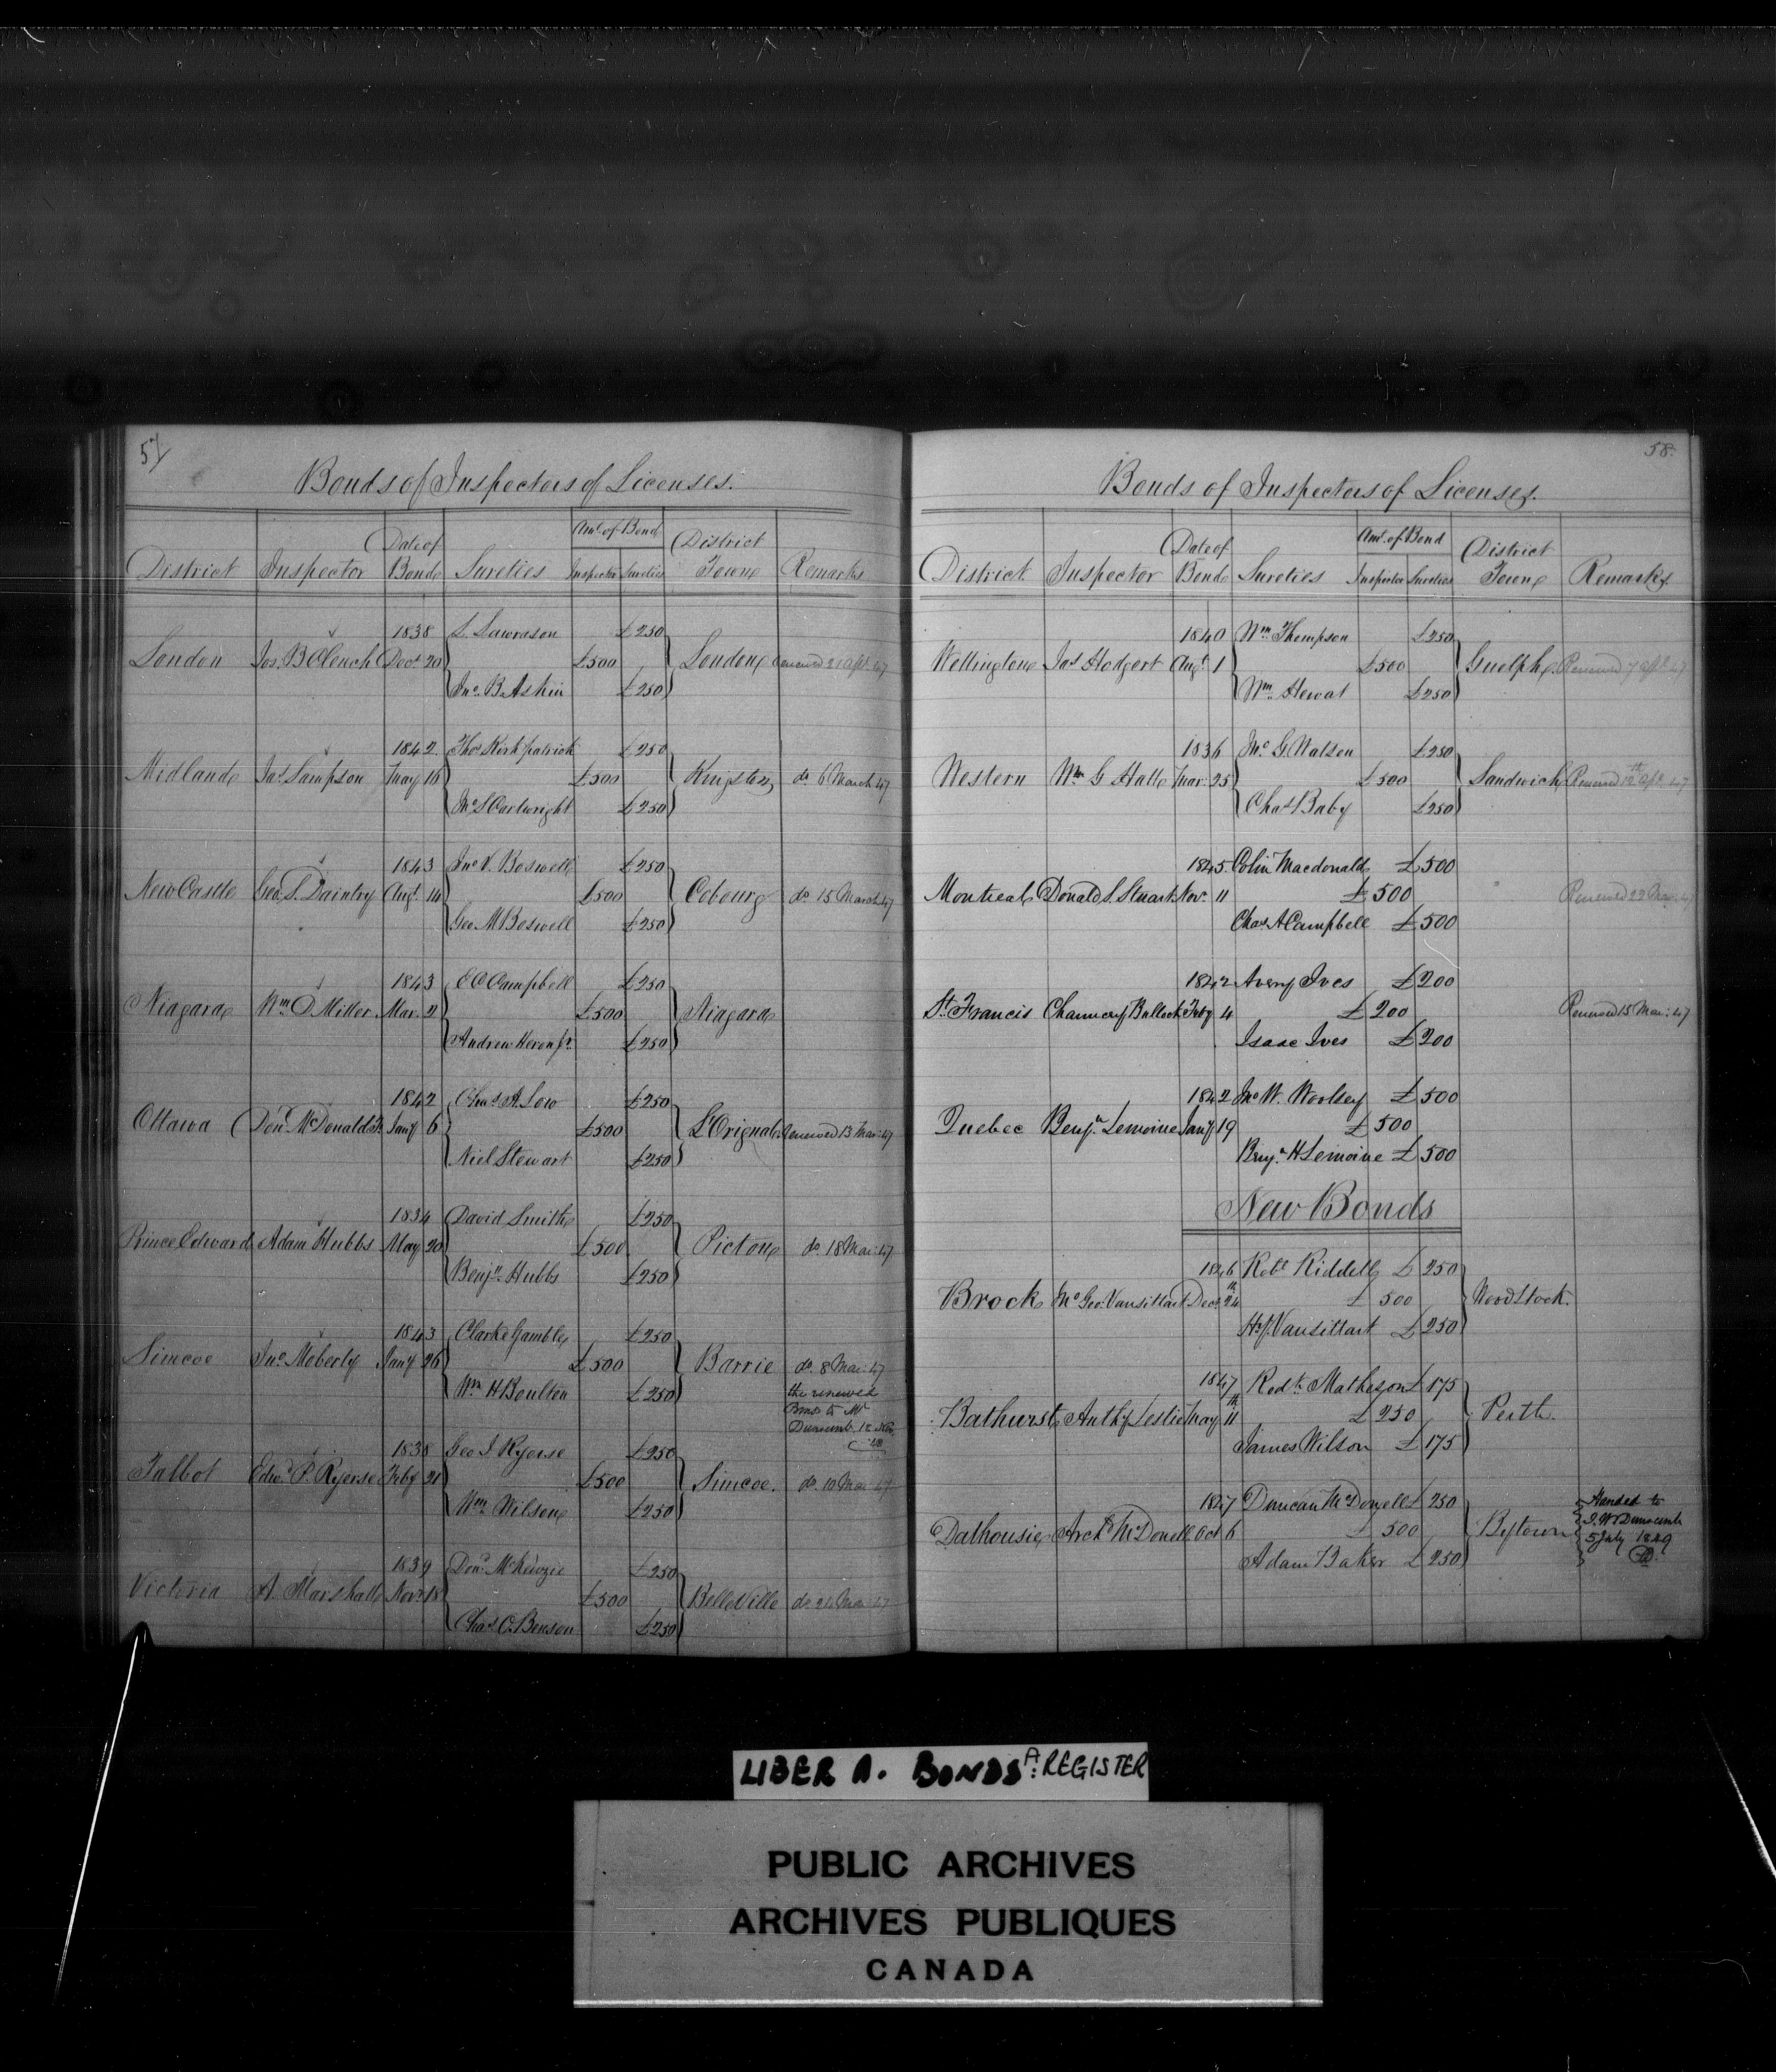 57
Bonds of Inspectors of Licenses.
District Inspector Date of Bond Sureties Amt. of Bond Inspector Sureties District Town Remarks
1838 L. Lawrason £250
London Jos. B Clench Decr 20 £500 London Renewed 21 Apl 47
Jno. B. Askin £250
1842 Thos Kirkpatrick £250
Midland Jas Sampson May 16 £500 Kingston do 6 March 47
Jno S Cartwright £250
1843 Jno V. Boswell £250
NewCastle Geo. S. Daintry Augt. 14 £500 Cobourg do 15 March 47
Geo. M Boswell £250
1843 E C Campbell £250
Niagara Wm D. Miller Mar. 2 £500 Niagara
Andrew Heron Jr. £250
1842 Chas A. Low £250
Ottawa Dond. McDonald Jany 6 £500 L'Orignal Renewed 13 Mar: 47
Niel Stewart £250
1834 David Smith £250
Prince Edward Adam Hubbs May 20 £500 Picton do 18 Mar: 47
Benjn. Hubbs £250
1843 Clarke Gamble £250
Simcoe Jno. Moberly Jany 26 £500 Barrie do 8 Mar: 47
Wm H Boulton £250 the renewed
Bond to Mr
Dunscomb 12
48
1838 Geo J. Ryerse £250
Talbot Edwd. P. Ryerse Feby 21 £500 Simcoe. do 10 Mar 47
Wm Wilson £250
1839 Dond. McKenzie £250
Victoria A. Marshall Novr 18 £500 BelleVille do 24 Mar: 47
Chas O. Benson £250
58.
Bonds of Inspectors of Licenses.
District Inspector Date of Bond Sureties Amt. of Bond Inspector Sureties District Town Remarks
1840 Wm Thompson £250
Wellington Jas Hodgert Augt 1 £500 Guelph Renewed 7 Apl 47
Wm Hewat £250
1836 Jno G. Watson £250
Western Wm G Hall Mar: 25 £500 Sandwich Renewed 12th Apl 47
Chas Baby £250
1845. Colin Macdonald £500
Montreal Donald S. Stuart Nov. 11 £500 Renewed 22 Mar: 47
Chas A Campbell £500
1842 Avery Ives £200
St. Francis Chauncey Bullock Feby 4 £200 Renewed 15 Mar: 47
Isaac Ives £200
1842 Jno W. Woolsey £500
Quebec Benjn. Lemoine Jany 19 £500
Benjn. H Lemoine £500
New Bonds
1846 Robt Riddell £250
Brock Jno Geo. Vansittart Decr 24th £500 WoodStock.
Hy. Vansittart £250
1847 Rodk. Matheson £175
Bathurst Anthy Leslie May 11th £250 Perth.
James Wilson £175
1847 Duncan McDonell £250 Handed to
Dalhousie Archd McDonell Oct 6 £500 Bytown J. W Dunscomb
Adam Baker £250 5 July 1849
LIBER A. BONDS A: REGISTER
PUBLIC ARCHIVES
ARCHIVES PUBLIQUES
CANADA